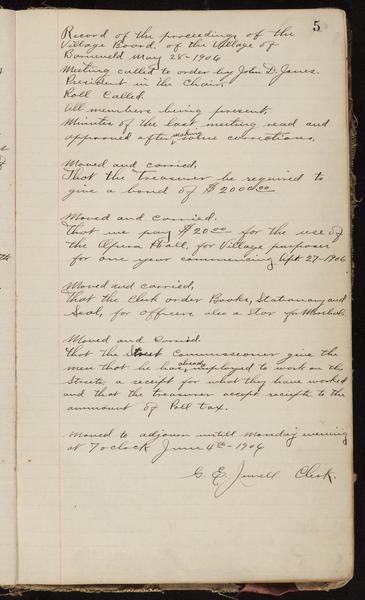 5
Record of the proceedings of the
Village Board, of the Village of
Barneveld May 28-1906
Meeting called to order by John D. Jones.
President in the Chair.
Roll Called.
All members being present,
Minutes of the last meeting read and
approved after making some corrections.
Moved and carried,
That the Treasurer be required to
give a bond of $2000.00
Moved and carried.
That we pay $20.00 for the use of
the Opera Hall, for Village purposes
for one year commencing Apt 27-1906
Moved and carried,
that the Clerk order Books, Stationary and
Seal, for Officers also a Star for Marshal.
Moved and Carried.
that the Street Commissioner give the
men that he has already imployed to work on the
Streets, a receipt for what they have worked
and that the treasurer accept receipts to the
ammount of Poll tax.
Moved to adjourn untill Monday evening
at 7 oclock June 4th-1906
G. E. Jewell Clerk.